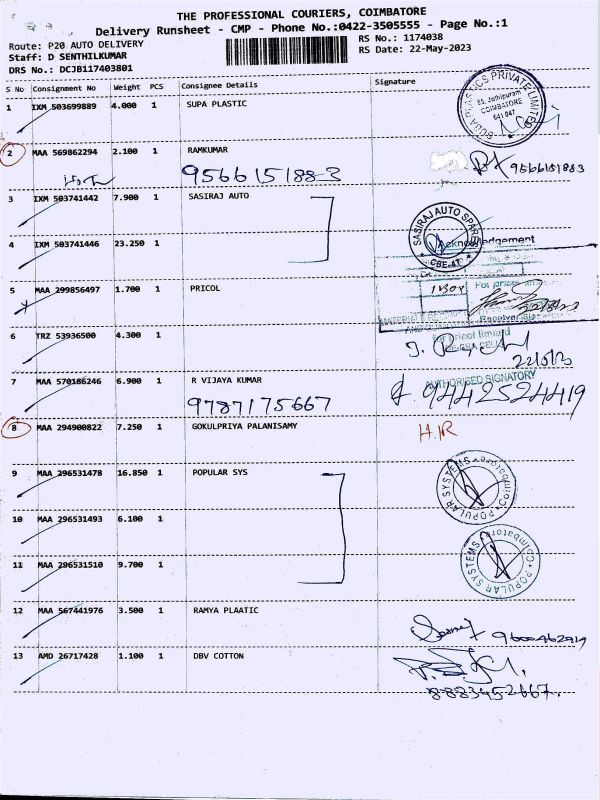 THE PROFESSIONAL COURIERS, COIMBATORE
Delivery Runsheet - CMP - Phone No.:0422-3505555 - Page No.:1
Route: P20 AUTO DELIVERY
RS No.: 1174038
Staff: D SENTHILKUMAR
RS Date: 22-May-2023
DRS No.: DCJB117403801
S No Consignment No Weight PCS Consignee Details Signature
1 IXM 503699889 4.000 1 SUPA PLASTIC
PLASTICS PRIVATE LIMITED
COIMBATORE
641 047
2 MAA 569862294 2.100 1 RAMKUMAR
9566151883 9566151883
3 IXM 503741442 7.900 1 SASIRAJ AUTO
SASIRAJ AUTO SPARES
CBE-47
4 IXM 503741446 23.250 1
Acknowledgement
5 MAA 299856497 1.700 1 PRICOL
For pricol limited
6 TRZ 53936500 4.300 1
for pricol limited
22/5/23
7 MAA 570186246 6.900 1 R VIJAYA KUMAR
AUTHORISED SIGNATORY
9787175667 9442524419
8 MAA 294900822 7.250 1 GOKULPRIYA PALANISAMY
H.R
9 MAA 296531478 16.850 1 POPULAR SYS
POPULAR SYSTEMS Coimbatore
10 MAA 296531493 6.100 1
11 MAA 296531510 9.700 1
POPULAR SYSTEMS Coimbatore
12 MAA 567441976 3.500 1 RAMYA PLAATIC
9600462919
13 AMD 26717428 1.100 1 DBV COTTON
8883452667.